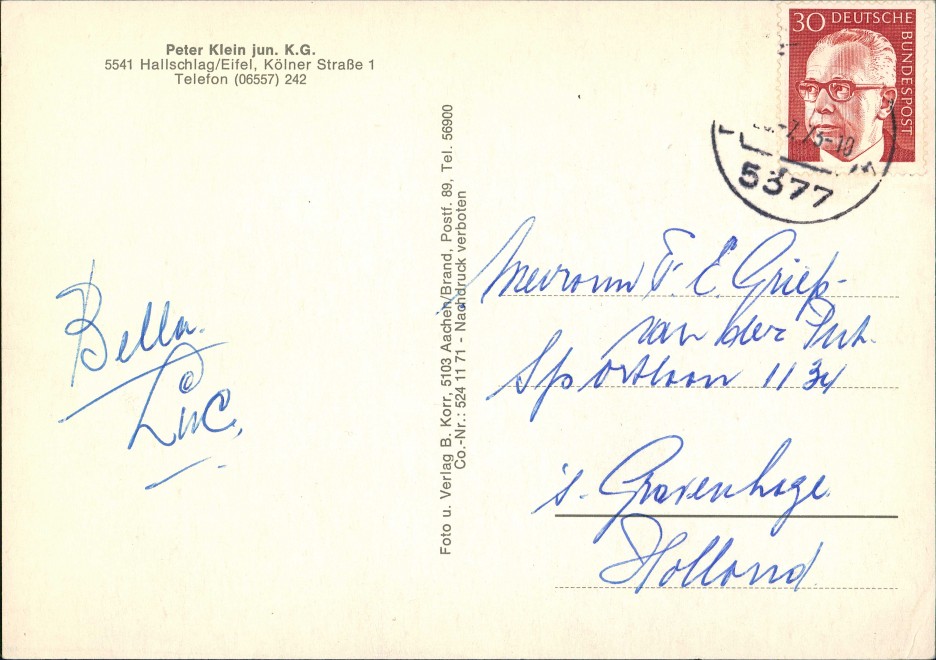 Peter Klein jun. K.G.
5541 Hallschlag/Eifel, Kölner Straße 1
Telefon (06557) 242
30 DEUTSCHE
BUNDESPOST
5377
Foto u. Verlag B. Korr, 5103 Aachen/Brand, Postf. 89, Tel. 56900
Co.-Nr.: 524 11 71 - Nachdruck verboten
Bella.
Luc.
Mevrouw F. E. Griep-
van der Put.
Sportlaan 1134
's-Gravenhage
Holland